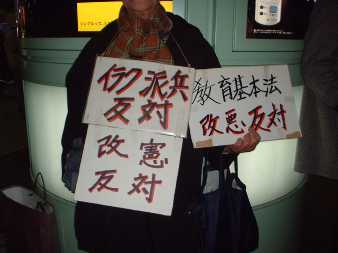 イラク派兵
反対
改憲
反対
教育基本法
改悪反対